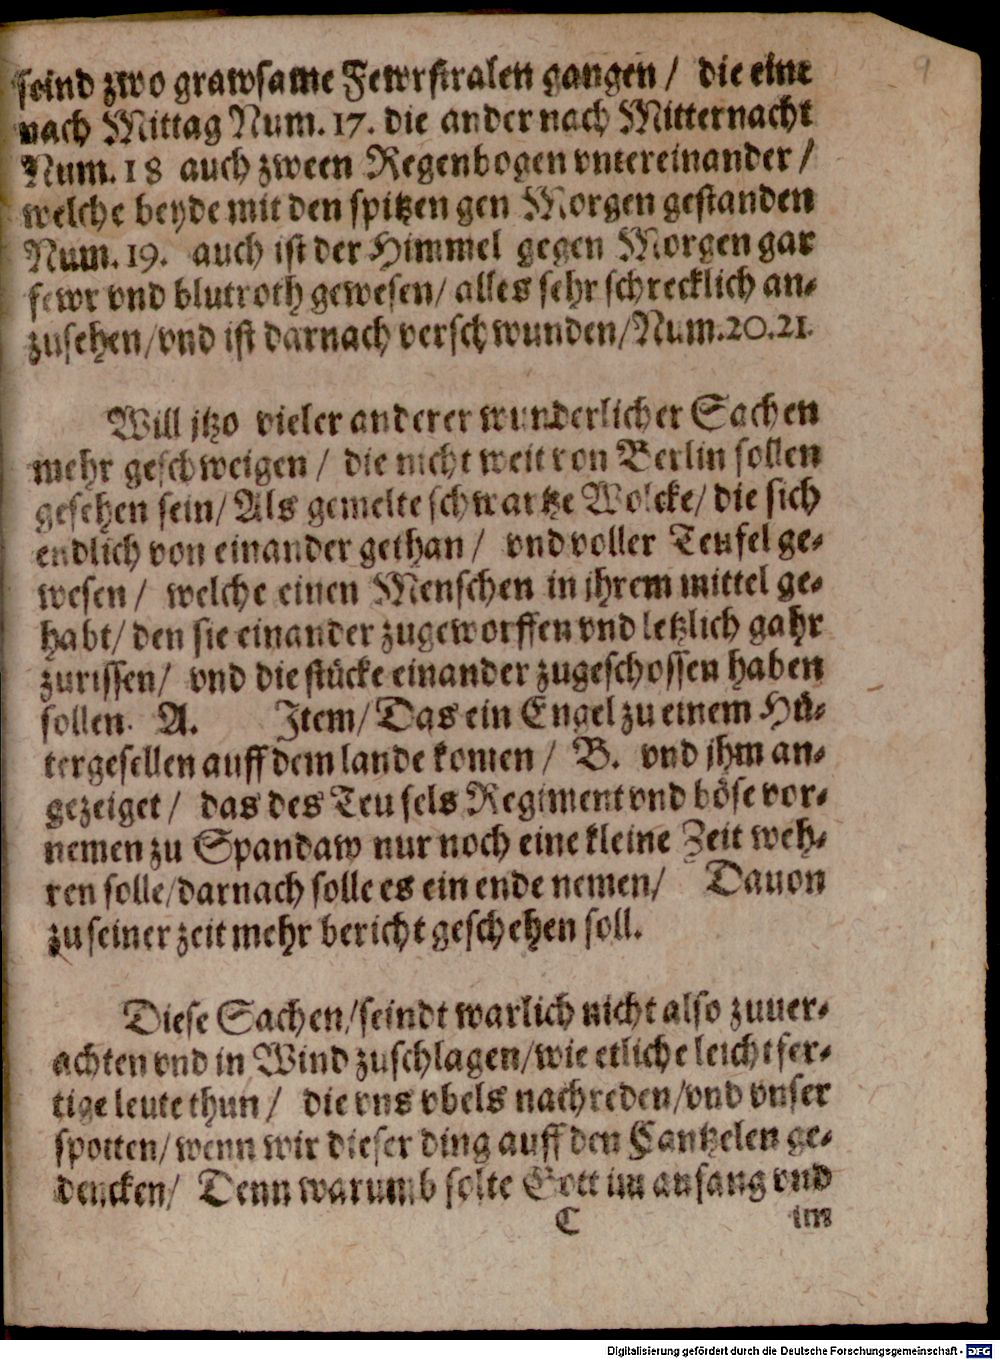 9
seind zwo grawsame Fewrstralen gangen / die eine
nach Mittag Num. 17. die ander nach Mitternacht
Num. 18 auch zween Regenbogen vntereinander /
welche beyde mit den spitzen gen Morgen gestanden
Num. 19. auch ist der Himmel gegen Morgen gar
fewr vnd blutroth gewesen / alles sehr schrecklich an-
zusehen / vnd ist darnach verschwunden / Num. 20. 21.
Will jtzo vieler anderer wunderlicher Sachen
mehr geschweigen / die nicht weit von Berlin sollen
gesehen sein / Als gemelte schwartze Wolcke / die sich
endlich von einander gethan / vnd voller Teufel ge-
wesen / welche einen Menschen in jhrem mittel ge-
habt / den sie einander zugeworffen vnd letzlich gahr
zurissen / vnd die stücke einander zugeschossen haben
sollen. A. Item / Das ein Engel zu einem Hü-
tergesellen auff dem lande komen / B. vnd jhm an-
gezeiget / das des Teufels Regiment vnd böse vor-
nemen zu Spandaw nur noch eine kleine Zeit weh-
ren solle / darnach solle es ein ende nemen / Dauon
zu seiner zeit mehr bericht geschehen soll.
Diese Sachen / seindt warlich nicht also zuuer-
achten vnd in Wind zuschlagen / wie etliche leichtfer-
tige leute thun / die vns vbels nachreden / vnd vnser
spotten / wenn wir dieser ding auff den Cantzelen ge-
dencken / Denn warumb solte Gott im anfang vnd
C im
Digitalisierung gefördert durch die Deutsche Forschungsgemeinschaft - DFG